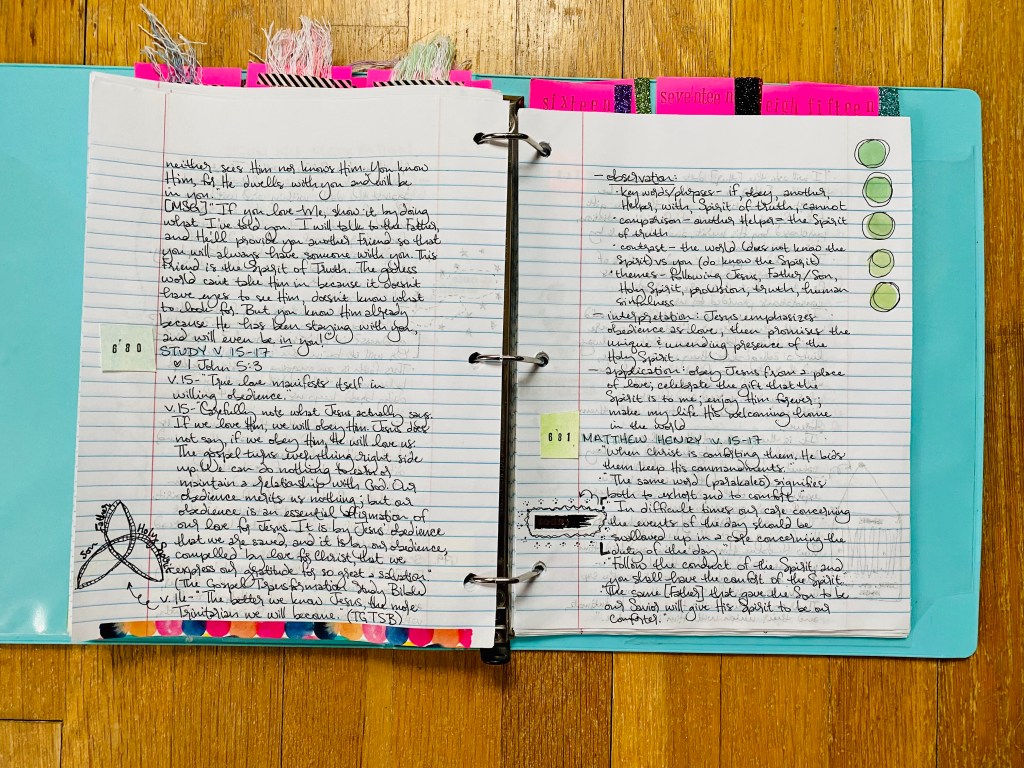 sixteen
seventeen
eight fifteen
neither sees Him nor knows Him. You know
Him, for He dwells with you and will be
in you.
[MSG] "If you love Me, show it by doing
what I've told you. I will talk to the Father,
and He'll provide you another Friend so that
you will always have someone with you. This
Friend is the Spirit of Truth. The godless
world can't take Him in because it doesn't
have eyes to see Him, doesn't know what
to look for. But you know Him already
because He has been staying with you,
and will even be in you!
680
STUDY V 15-17
1 John 5:3
v.15-"True love manifests itself in
willing obedience."
v.15-"Carefully note what Jesus actually says.
If we love Him, we will obey Him. Jesus does
not say, if we obey Him, He will love us.
The gospel turns everything right side
up. We can do nothing to earn or
maintain a relationship with God. Our
obedience merits us nothing; but our
obedience is an essential affirmation of
our love for Jesus. It is by Jesus' obedience
that we are saved, and it is by our obedience,
compelled by love for Christ, that we
express our gratitude for so great a salvation"
(The Gospel Transformation Study Bible)
v.16-"The better we know Jesus, the more
Trinitarian we will become. (TGTSB)
Son Father Holy Spirit
- observation:
• key words/phrases - if, obey, another,
Helper, with, Spirit of truth, cannot
• comparison - another Helper = the Spirit
of truth
• contrast - the world (does not know the
Spirit) vs you (do know the Spirit)
• themes - following Jesus, Father/Son,
Holy Spirit, provision, truth, human
sinfulness
- interpretation: Jesus emphasizes
obedience as love, then promises the
unique & unending presence of the
Holy Spirit.
- application: obey Jesus from a place
of love; celebrate the gift that the
Spirit is to me; enjoy Him forever;
make my life His welcoming home
in the world
681
MATTHEW HENRY V. 15-17
• "When Christ is comforting them, He bids
them keep His commandments."
• "The same word (parakaleo) signifies
both to exhort and to comfort."
• "In difficult times our care concerning
the events of the day should be
swallowed up in a care concerning the
duty of the day."
• "Follow the conduct of the Spirit, and
you shall have the comfort of the Spirit.
• "The same [Father] that gave the Son to be
our Savior will give His Spirit to be our
comforter.